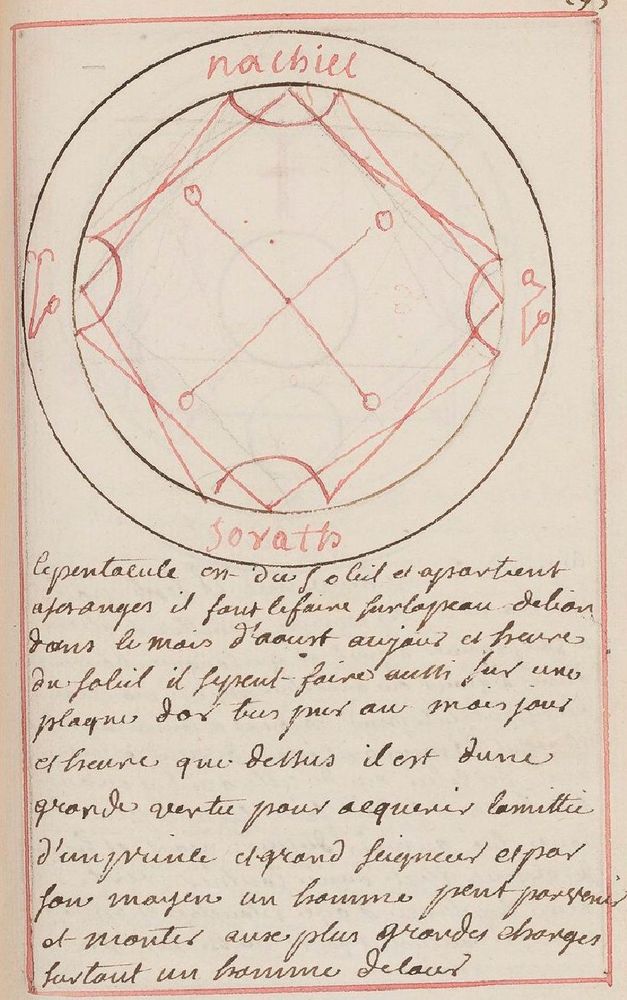 nachiel
sorath
le pentacule est du soleil et apartient
a ses anges il faut le faire sur la peau de lion
dans le mois d'aoust au jour et heure
du soleil il se peut faire aussi sur une
plaque dor tres pur au mois jour
et heure que dessus il est dune
grande vertu pour acquerir lamittie
d'un prince et grand seigneur et par
son moyen un homme peut parvenir
et monter aux plus grandes charges
surtout un homme de lour